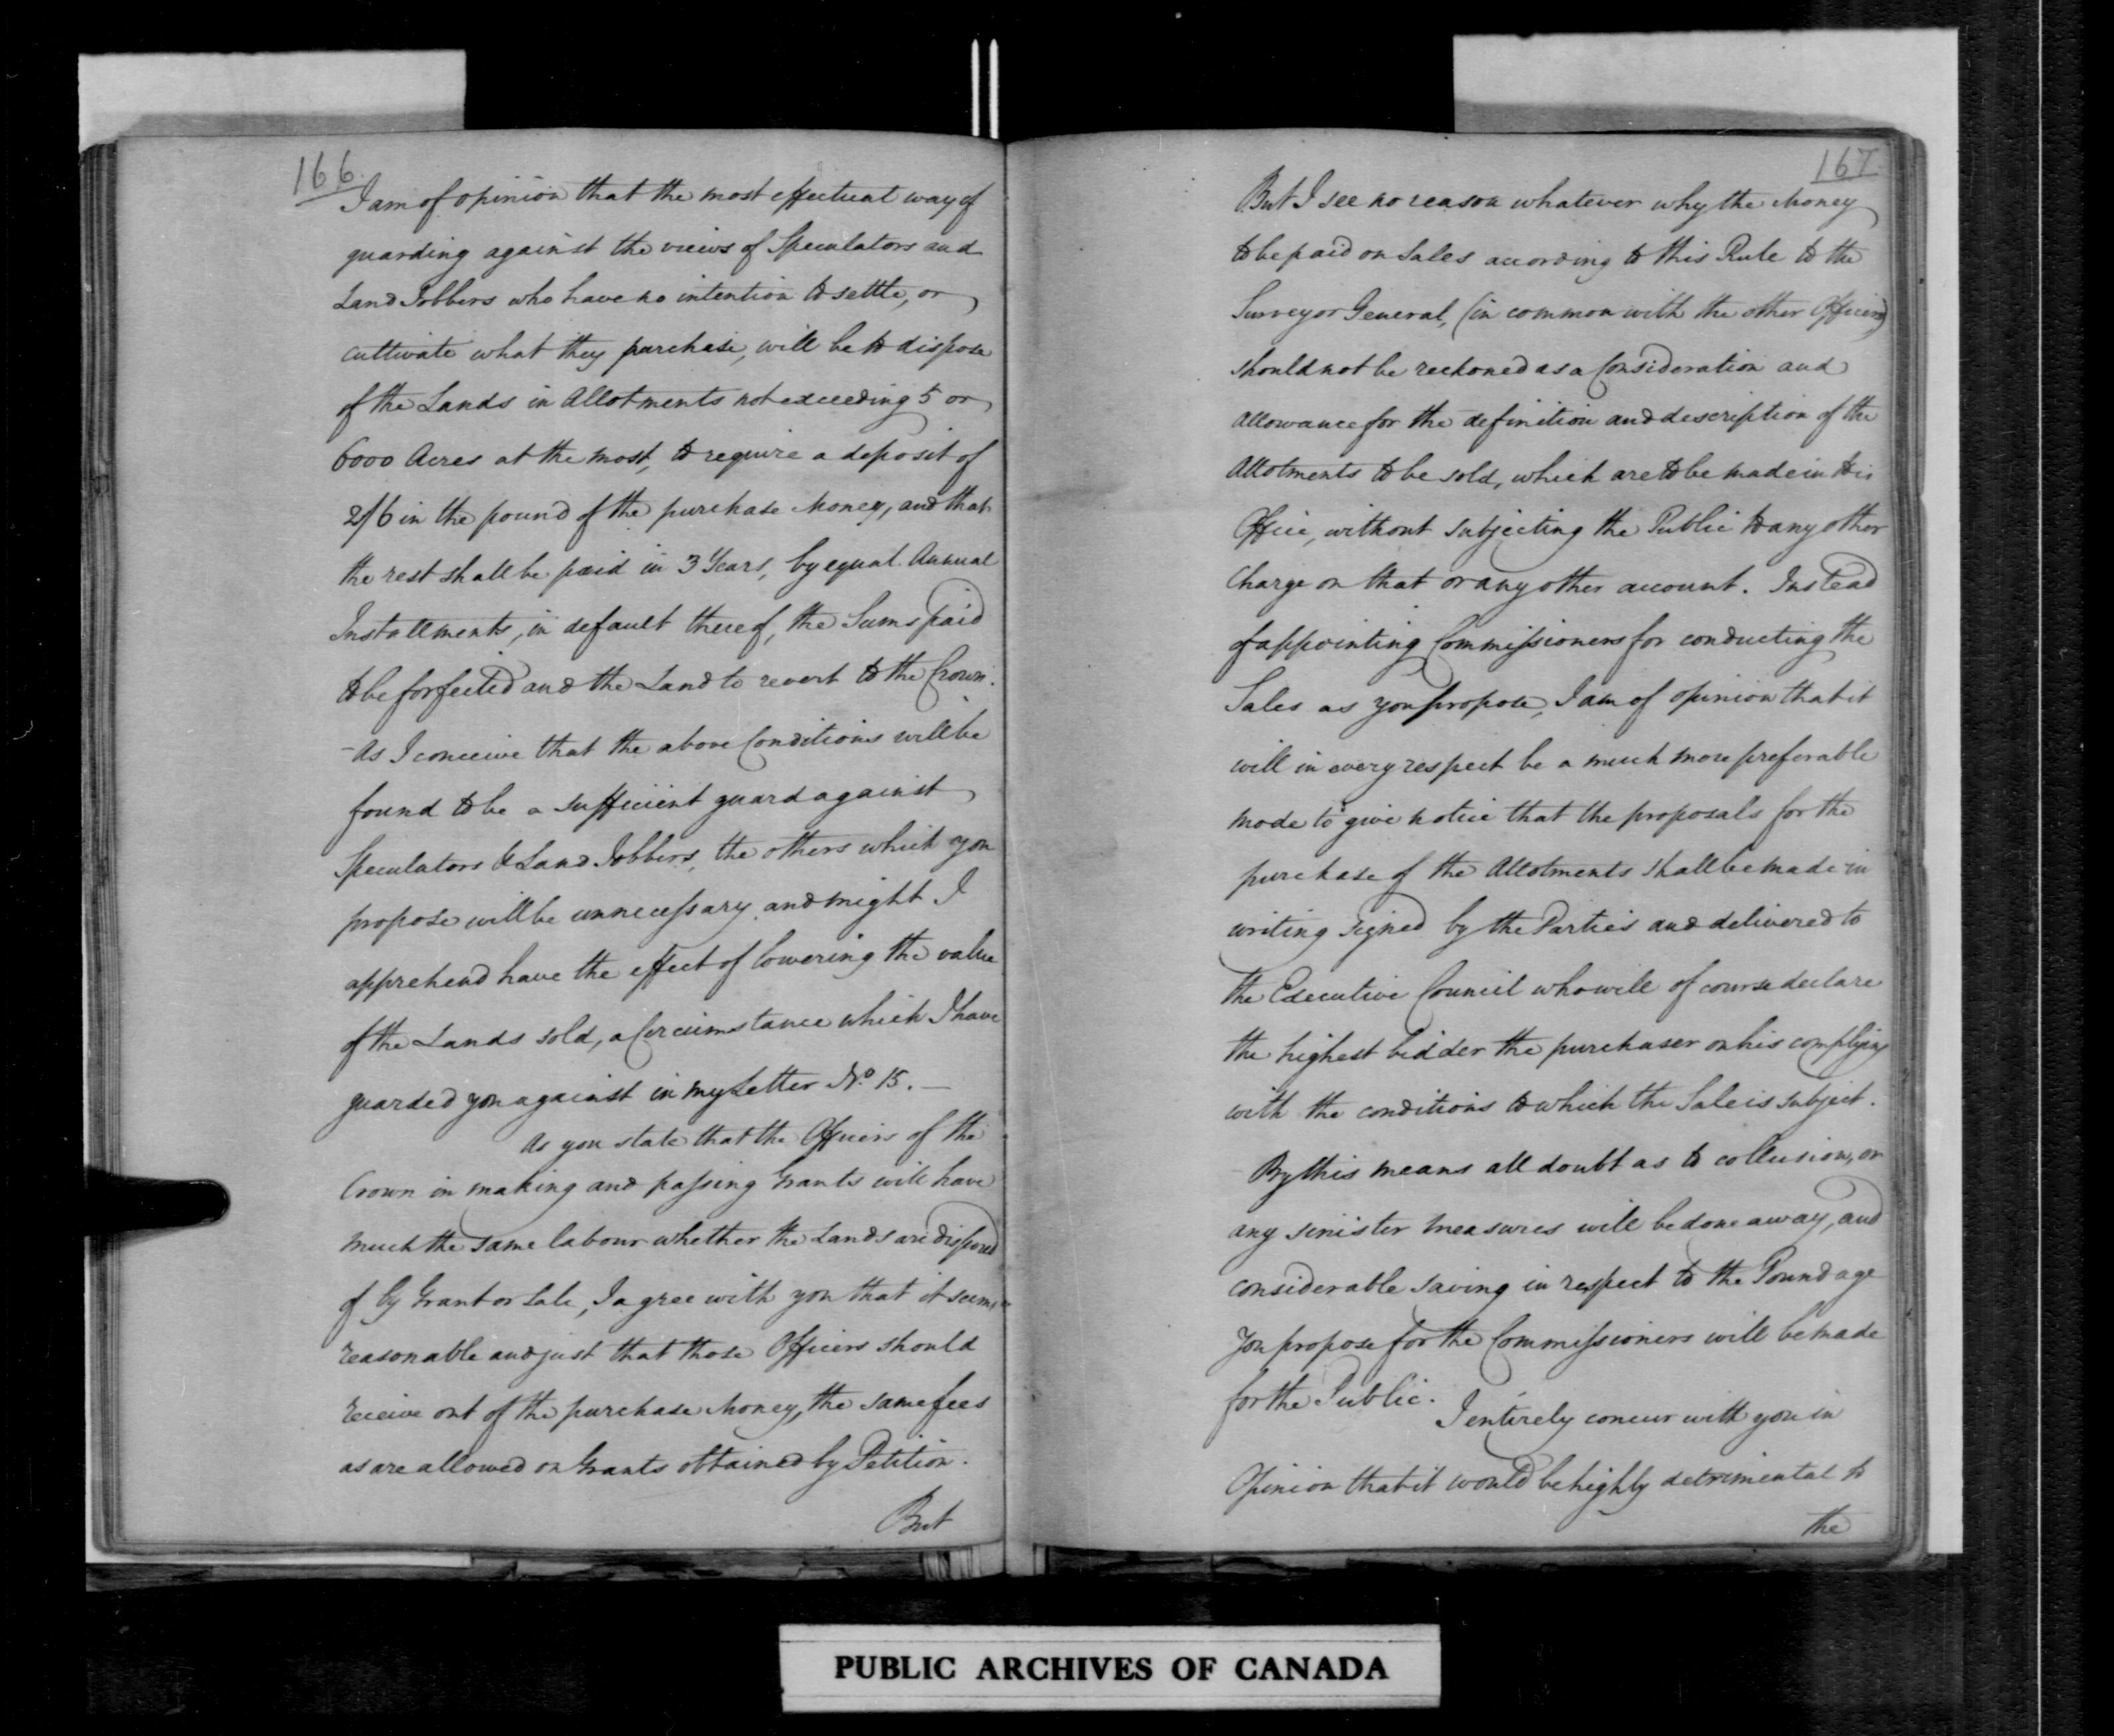 166.
I am of opinion that the most effectual way of
guarding against the views of Speculators and
Land Jobbers who have no intention to settle, or
cultivate what they purchase, will be to dispose
of the Lands in Allotments not exceeding 5 or
6000 Acres at the most, to require a deposit of
2/6 in the pound of the purchase Money, and that
the rest shall be paid in 3 Years, by equal Annual
Installments, in default thereof, the Sums paid
to be forfeited and the Land to revert to the Crown.
- As I conceive that the above Conditions will be
found to be a sufficient guard against
Speculators & Land Jobbers, the others which you
propose will be unnecessary and might I
apprehend have the effect of lowering the value
of the Lands sold, a Circumstance which I have
guarded you against in my Letter No. 15. —
As you state that the Officers of the
Crown in making and passing Grants will have
much the same labour whether the Lands are disposed
of by Grant or Sale, I agree with you that it seems
reasonable and just that those Officers should
receive out of the purchase Money, the same fees
as are allowed on Grants obtained by Petition.
But
167.
But I see no reason whatever why the Money
to be paid on Sales according to this Rule to the
Surveyor General, (in common with the other Officers)
should not be reckoned as a Consideration and
Allowance for the definition and description of the
Allotments to be sold, which are to be made in his
Office, without subjecting the Public to any other
Charge on that or any other account. Instead
of appointing Commissioners for conducting the
Sales as you propose, I am of opinion that it
will in every respect be a much more preferable
mode to give notice that the proposals for the
purchase of the Allotments shall be made in
writing signed by the Parties and delivered to
the Executive Council who will of course declare
the highest bidder the purchaser on his complying
with the conditions to which the Sale is subject.
- By this means all doubt as to collusion, or
any sinister measures will be done away, and
considerable saving in respect to the Poundage
you propose for the Commissioners will be made
for the Public.
I entirely concur with you in
Opinion that it would be highly detrimental to
the
PUBLIC ARCHIVES OF CANADA